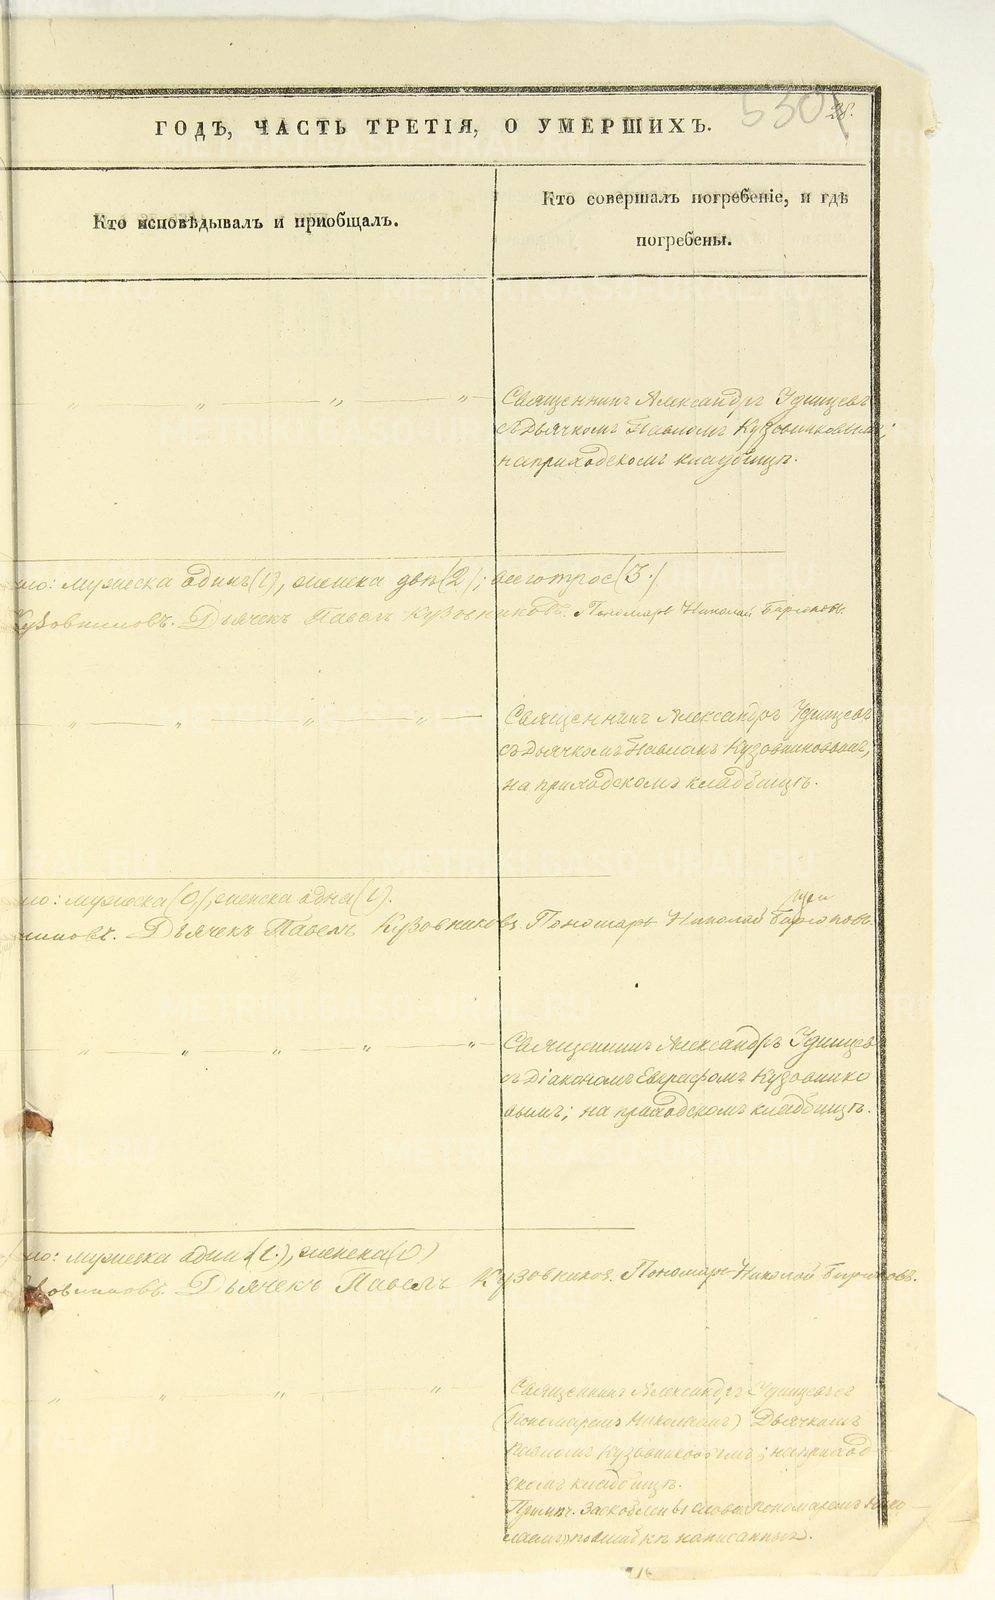 530
28.
ГОДЪ, ЧАСТЬ ТРЕТІЯ, О УМЕРШИХЪ.
Кто исповѣдывалъ и пріобщалъ.
Кто совершалъ погребеніе, и гдѣ
погребены.
Священникъ Александръ Удинцевъ
съ Дьячкомъ Павломъ Кузовниковымъ;
на приходскомъ кладбищѣ.
ло: мужеска одинъ (1), женска двѣ (2); всего трое (3.)
Кузовниковъ. Дьячекъ Павелъ Кузовниковъ. Пономарь Николай
Священникъ Александръ Удинцевъ
съ Дьячкомъ Павломъ Кузовниковымъ,
на приходскомъ кладбищѣ.
ло: мужеска (0), женска одна (1).
никовъ. Дьячекъ Павелъ Кузовниковъ. Пономарь Николай
Священникъ Александръ Удинцевъ
съ Діакономъ Евграфомъ Кузовнико
вымъ; на приходскомъ кладбищѣ.
ло: мужеска одинъ (1.), женска (0)
овниковъ. Дьячекъ Павелъ Кузовниковъ. Пономарь Николай
Священникъ Александръ Удинцевъ съ
(Пономаремъ Николаемъ) Дьячкомъ
Павломъ Кузовниковымъ; на приход
скомъ кладбищѣ.
Примѣч. Заскоблены слова Пономаремъ Нико
лаемъ, по ошибкѣ написанныя.
METRIKI.GASO-URAL.RU